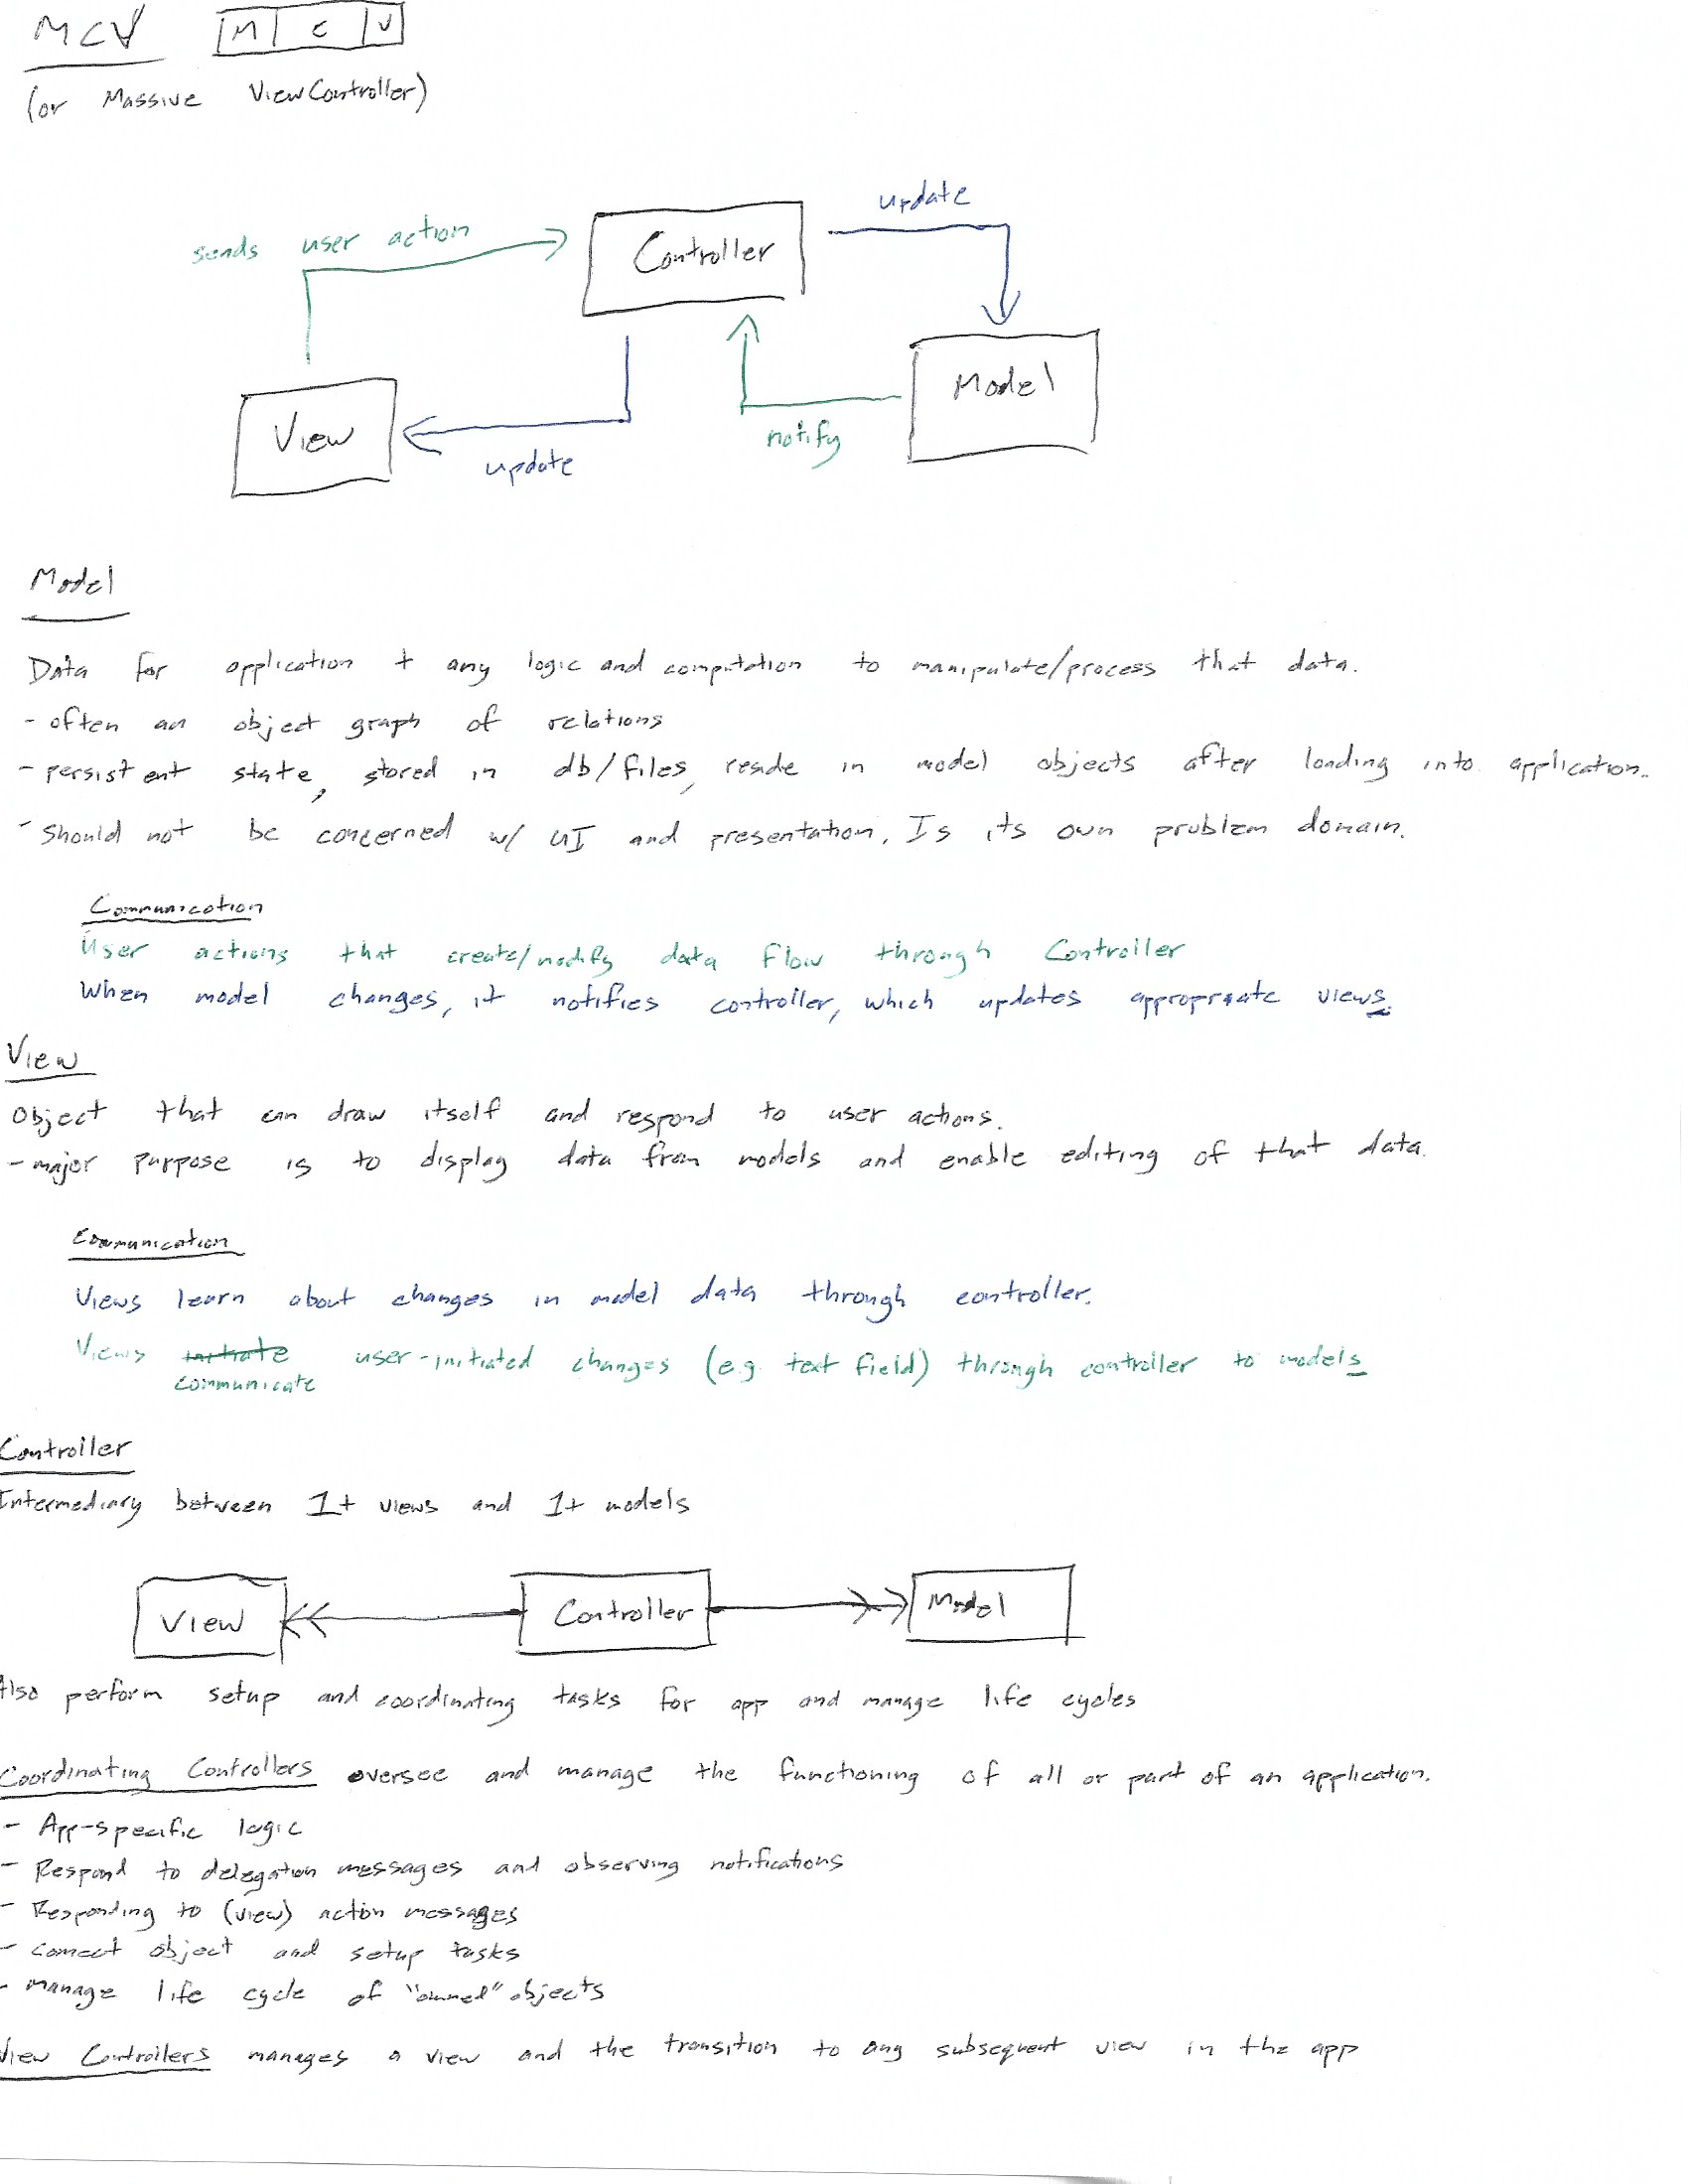 MCV M C V
(or Massive ViewController)
update
sends user action
Controller
Model
View
update
notify
Model
Data for application + any logic and computation to manipulate/process that data.
- often an object graph of relations
- persistent state, stored in db/files, reside in model objects after loading into application.
- Should not be concerned w/ UI and presentation. Is its own problem domain.
Communication
User actions that create/modify data flow through Controller
When model changes, it notifies controller, which updates appropriate views.
View
Object that can draw itself and respond to user actions.
- major purpose is to display data from models and enable editing of that data.
Communication
Views learn about changes in model data through controller.
Views initiate user-initiated changes (e.g. text field) through controller to models
communicate
Controller
Intermediary between 1+ views and 1+ models
View Controller Model
Also perform setup and coordinating tasks for app and manage life cycles
Coordinating Controllers oversee and manage the functioning of all or part of an application.
- App-specific logic
- Respond to delegation messages and observing notifications
- Responding to (view) action messages
- connect object and setup tasks
- manage life cycle of "owned" objects
View Controllers manages a view and the transition to any subsequent view in the app